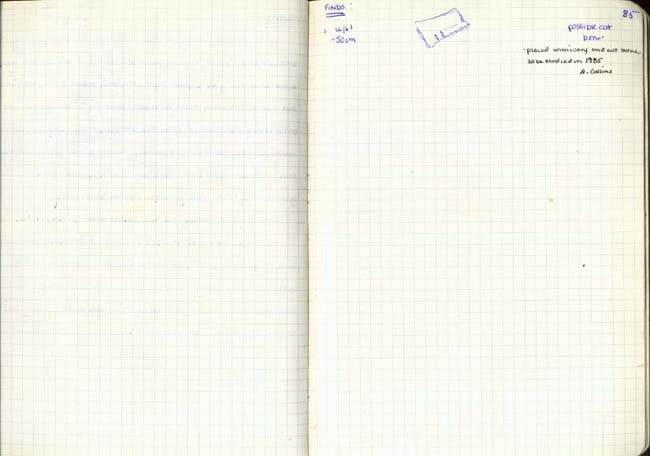 FINDS:
85
1. u/6'
~50cm
possible cut
bone
- placed w/ ivory and cut bone
to be studied in 1985
A. Collins